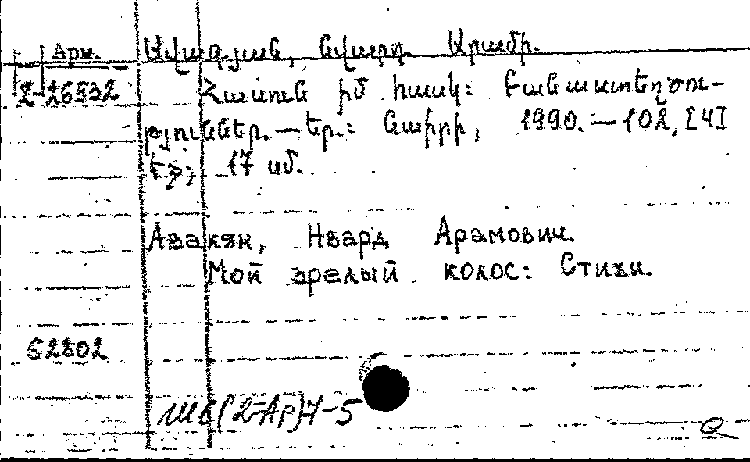 Арм. Ավագյան, Նվարդ Արամի.
2-26932 Հասուն իմ հասկ: Բանաստեղծու-
թյուններ. — Եր.: Նաիրի, 1990. — 102, [4]
էջ; 17 սմ.
Авакян, Нвард Арамович.
Мой зрелый колос: Стихи.
62802
Ш6(2-Ар)7-5